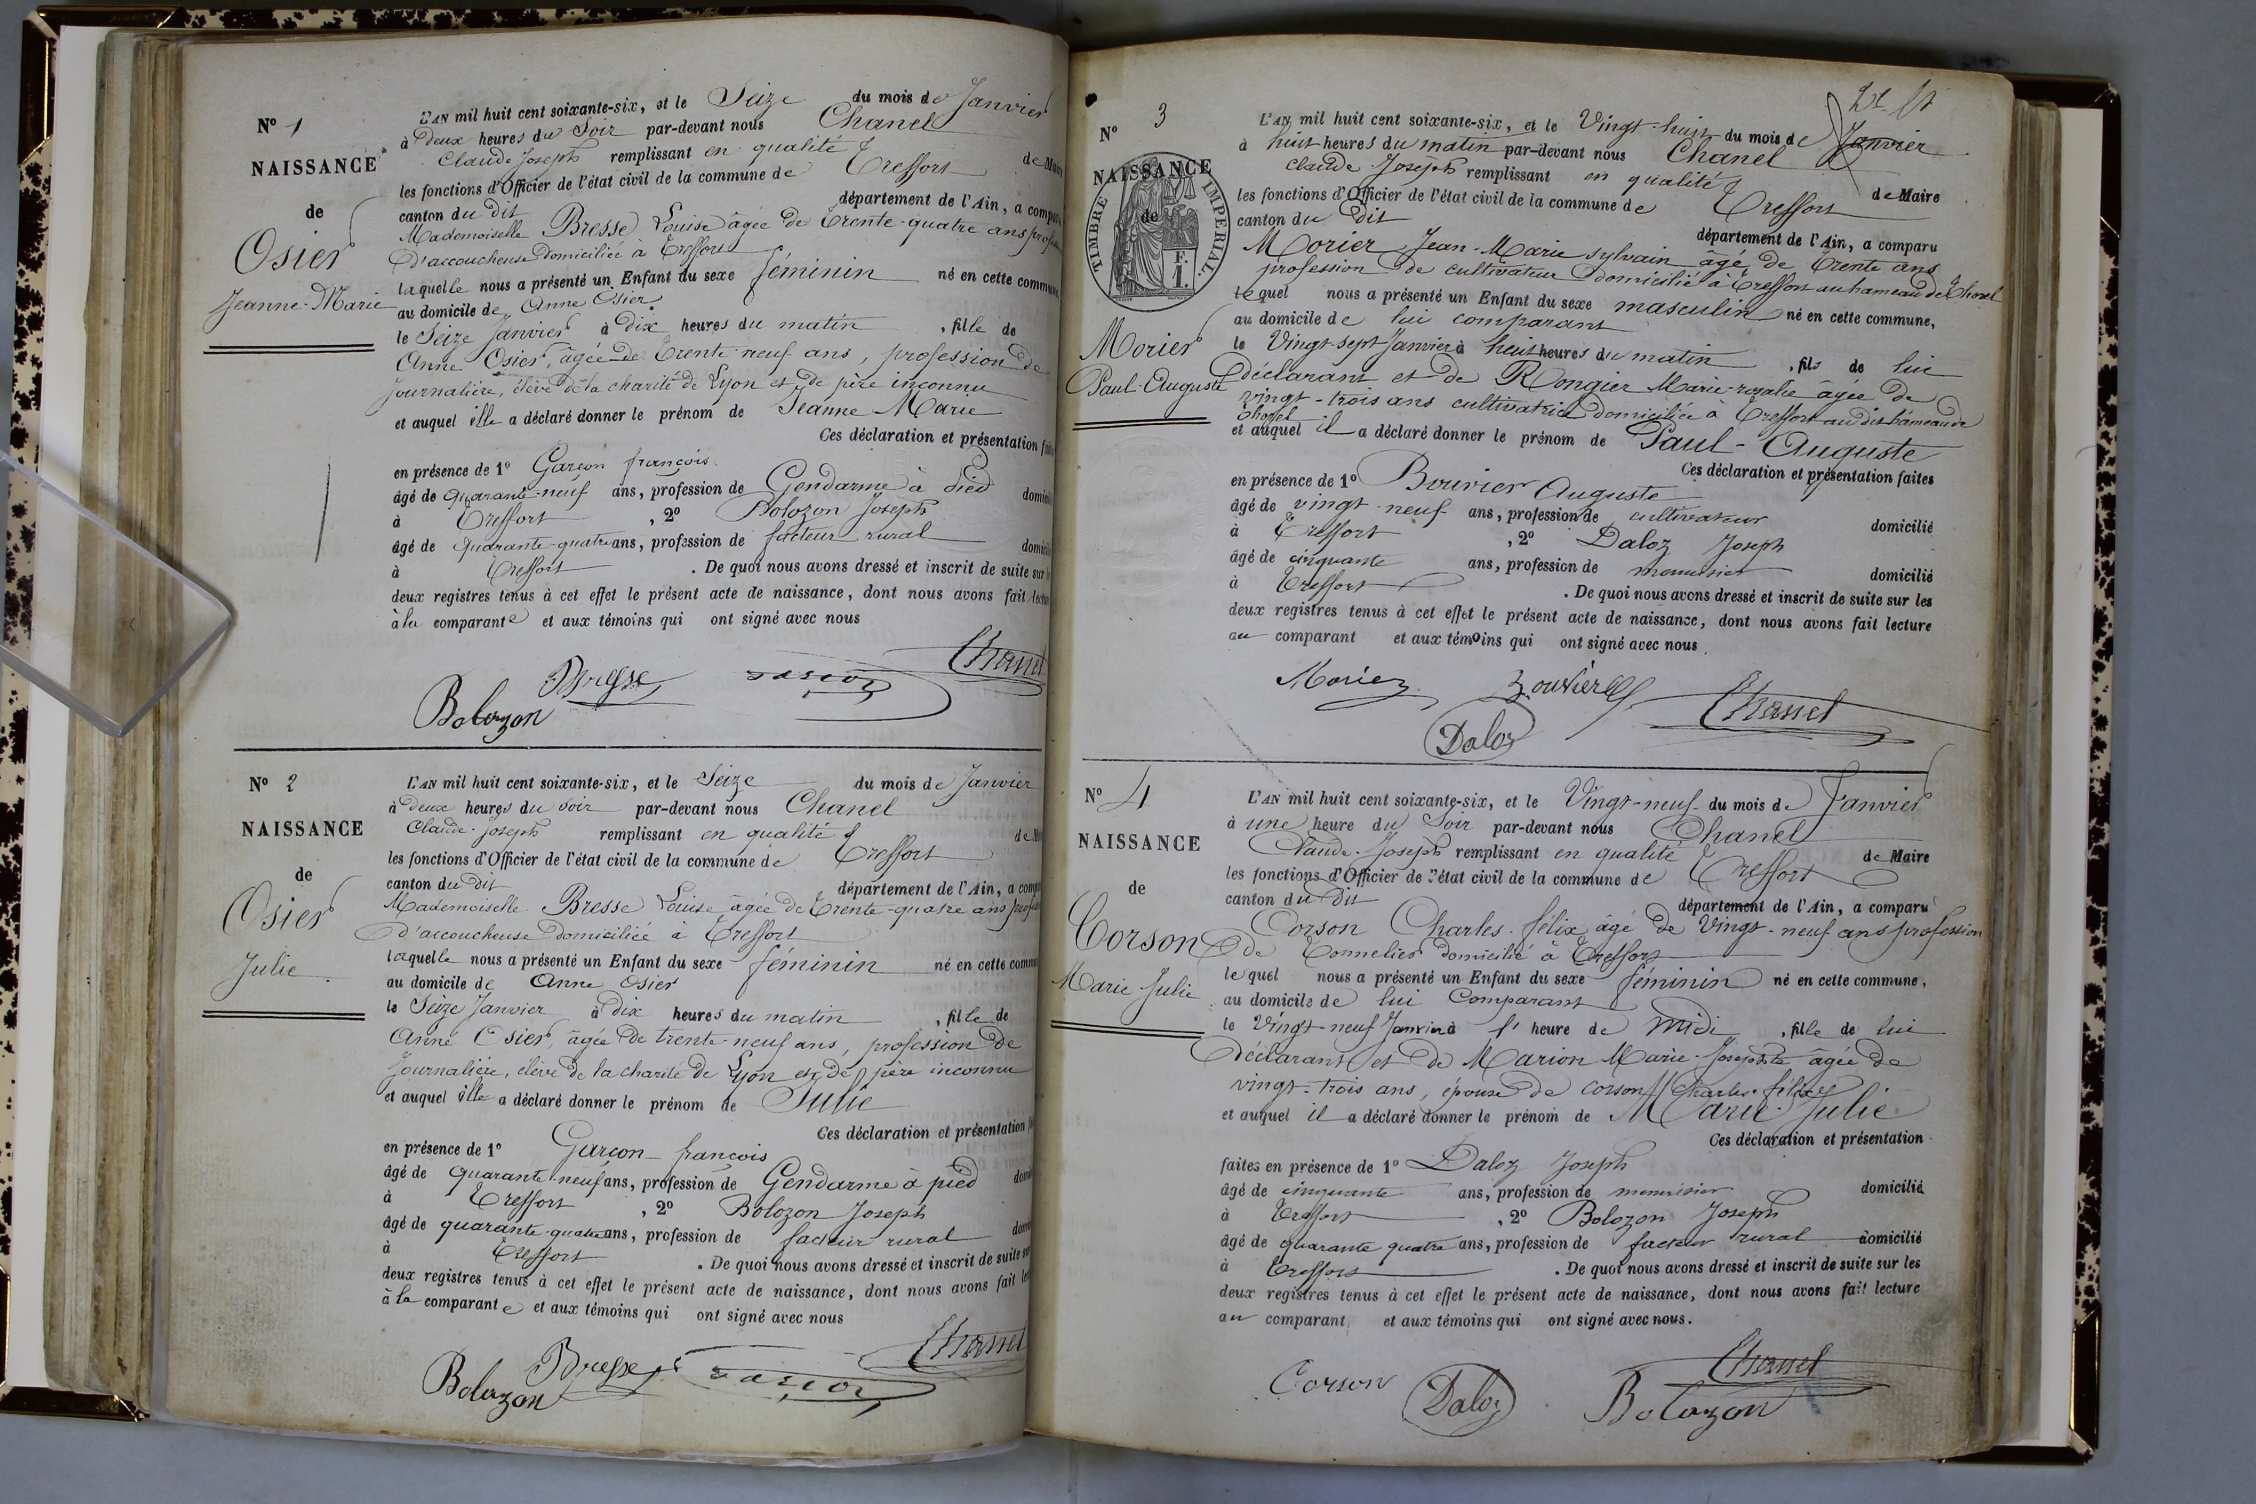 N° 1
NAISSANCE
de
Osier
Jeanne-Marie
L'AN mil huit cent soixante-six, et le Seize du mois de Janvier
à Deux heures du Soir par-devant nous Chanel
Claude Joseph remplissant en qualité de Maire
les fonctions d'Officier de l'état civil de la commune de Treffort
canton du dit département de l'Ain, a comparu
Mademoiselle Bresse Louise âgée de Trente-quatre ans profession
d'accoucheuse Domiciliée à Treffort
laquelle nous a présenté un Enfant du sexe féminin né en cette commune,
au domicile de Anne Osier
le Seize Janvier à Dix heures du matin, fille de
Anne Osier, âgée de Trente neuf ans, profession de
Journalière, élève de la charité de Lyon et de père inconnu
et auquel elle a déclaré donner le prénom de Jeanne Marie
Ces déclaration et présentation
en présence de 1° Garçon françois
âgé de quarante-neuf ans, profession de Gendarme à pied
à Treffort, 2° Bolozon Joseph
âgé de quarante-quatre ans, profession de facteur rural
à Treffort. De quoi nous avons dressé et inscrit de suite sur
deux registres tenus à cet effet le présent acte de naissance, dont nous avons fait lecture
à la comparante et aux témoins qui ont signé avec nous
Chanel
Bresse
Garçon
Bolozon
N° 2
NAISSANCE
de
Osier
Julie
L'AN mil huit cent soixante-six, et le Seize du mois de Janvier
à Deux heures du soir par-devant nous Chanel
Claude-Joseph remplissant en qualité de
les fonctions d'Officier de l'état civil de la commune de Treffort
canton du dit département de l'Ain, a
Mademoiselle Bresse Louise âgée de Trente-quatre ans
d'accoucheuse Domiciliée à Treffort
laquelle nous a présenté un Enfant du sexe féminin né en cette
au domicile de Anne Osier
le Seize Janvier à Dix heures du matin, fille de
Anne Osier, âgée de trente-neuf ans, profession de
Journalière, élève de la charité de Lyon et de père inconnu
et auquel elle a déclaré donner le prénom de Julie
Ces déclaration et présentation
en présence de 1° Garçon françois
âgé de quarante neuf ans, profession de Gendarme à pied
à Treffort, 2° Bolozon Joseph
âgé de quarante-quatre ans, profession de facteur rural
à Treffort. De quoi nous avons dressé et inscrit de suite
deux registres tenus à cet effet le présent acte de naissance, dont nous avons fait
à la comparante et aux témoins qui ont signé avec nous
Chanel
Bresse
Garçon
Bolozon
N° 3
NAISSANCE
de
TIMBRE IMPERIAL.
1 F.
Morier
Paul-Auguste
L'AN mil huit cent soixante-six, et le Vingt-huit du mois de Janvier
à huit heures du matin par-devant nous Chanel
Claude-Joseph remplissant en qualité de Maire
les fonctions d'Officier de l'état civil de la commune de Treffort
canton du dit département de l'Ain, a comparu
Morier Jean-Marie Sylvain âgé de Trente ans
profession de cultivateur Domicilié à Treffort au hameau de
lequel nous a présenté un Enfant du sexe masculin né en cette commune,
au domicile de lui comparant
le Vingt-sept Janvier à huit heures du matin, fils de lui
Déclarant et de Rongier Marie-rosalie âgée de
vingt-trois ans cultivatrice Domiciliée à Treffort au dit hameau de
et auquel il a déclaré donner le prénom de Paul-Auguste
Ces déclaration et présentation faites
en présence de 1° Bouvier Auguste
âgé de vingt-neuf ans, profession de cultivateur domicilié
à Treffort, 2° Daloz Joseph
âgé de cinquante ans, profession de menuisier domicilié
à Treffort. De quoi nous avons dressé et inscrit de suite sur les
deux registres tenus à cet effet le présent acte de naissance, dont nous avons fait lecture
au comparant et aux témoins qui ont signé avec nous.
Morier
Bouvier
Chanel
Daloz
N° 4
NAISSANCE
de
Corson
Marie Julie
L'AN mil huit cent soixante-six, et le Vingt-neuf du mois de Janvier
à une heure du Soir par-devant nous Chanel
Claude-Joseph remplissant en qualité de Maire
les fonctions d'Officier de l'état civil de la commune de Treffort
canton du Dit département de l'Ain, a comparu
Corson Charles-félix âgé de Vingt-neuf ans profession
de Tonnelier domicilié à Treffort
lequel nous a présenté un Enfant du sexe féminin né en cette commune,
au domicile de lui Comparant
le Vingt-neuf Janvier à l' heure de midi, fille de lui
Déclarant et de Marion Marie-Josephte âgée de
vingt-trois ans, épouse de Corson Charles-félix
et auquel il a déclaré donner le prénom de Marie-Julie
Ces déclaration et présentation
faites en présence de 1° Daloz Joseph
âgé de cinquante ans, profession de menuisier domicilié
à Treffort, 2° Bolozon Joseph
âgé de quarante quatre ans, profession de facteur rural domicilié
à Treffort. De quoi nous avons dressé et inscrit de suite sur les
deux registres tenus à cet effet le présent acte de naissance, dont nous avons fait lecture
au comparant et aux témoins qui ont signé avec nous.
Chanel
Corson
Daloz
Bolozon